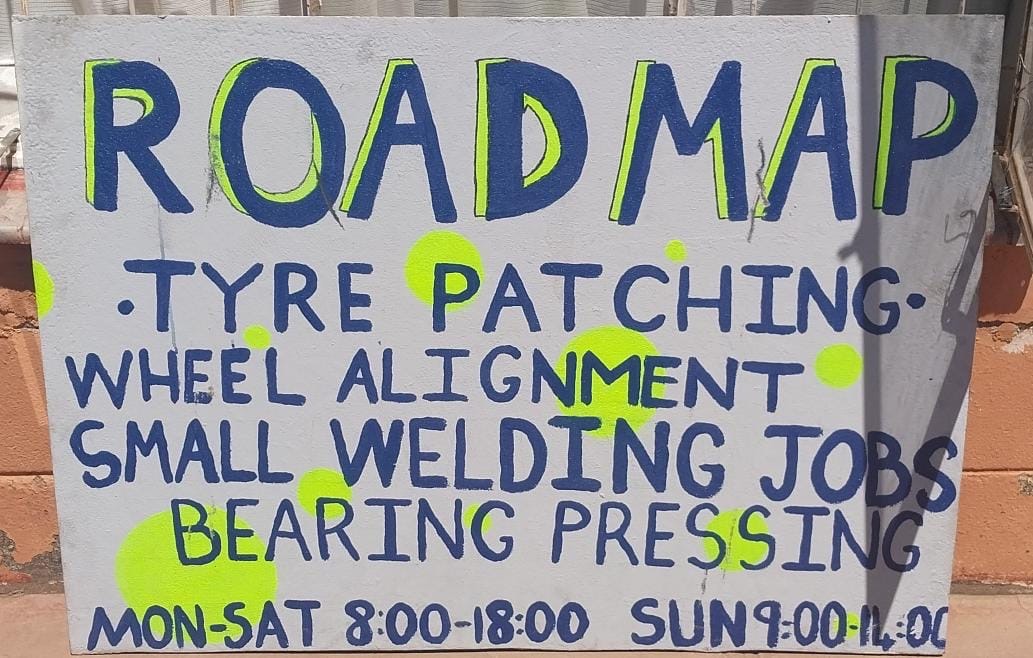 ROAD MAP
·TYRE PATCHING·
WHEEL ALIGNMENT
SMALL WELDING JOBS
BEARING PRESSING
MON-SAT 8:00-18:00 SUN 9:00-14:00